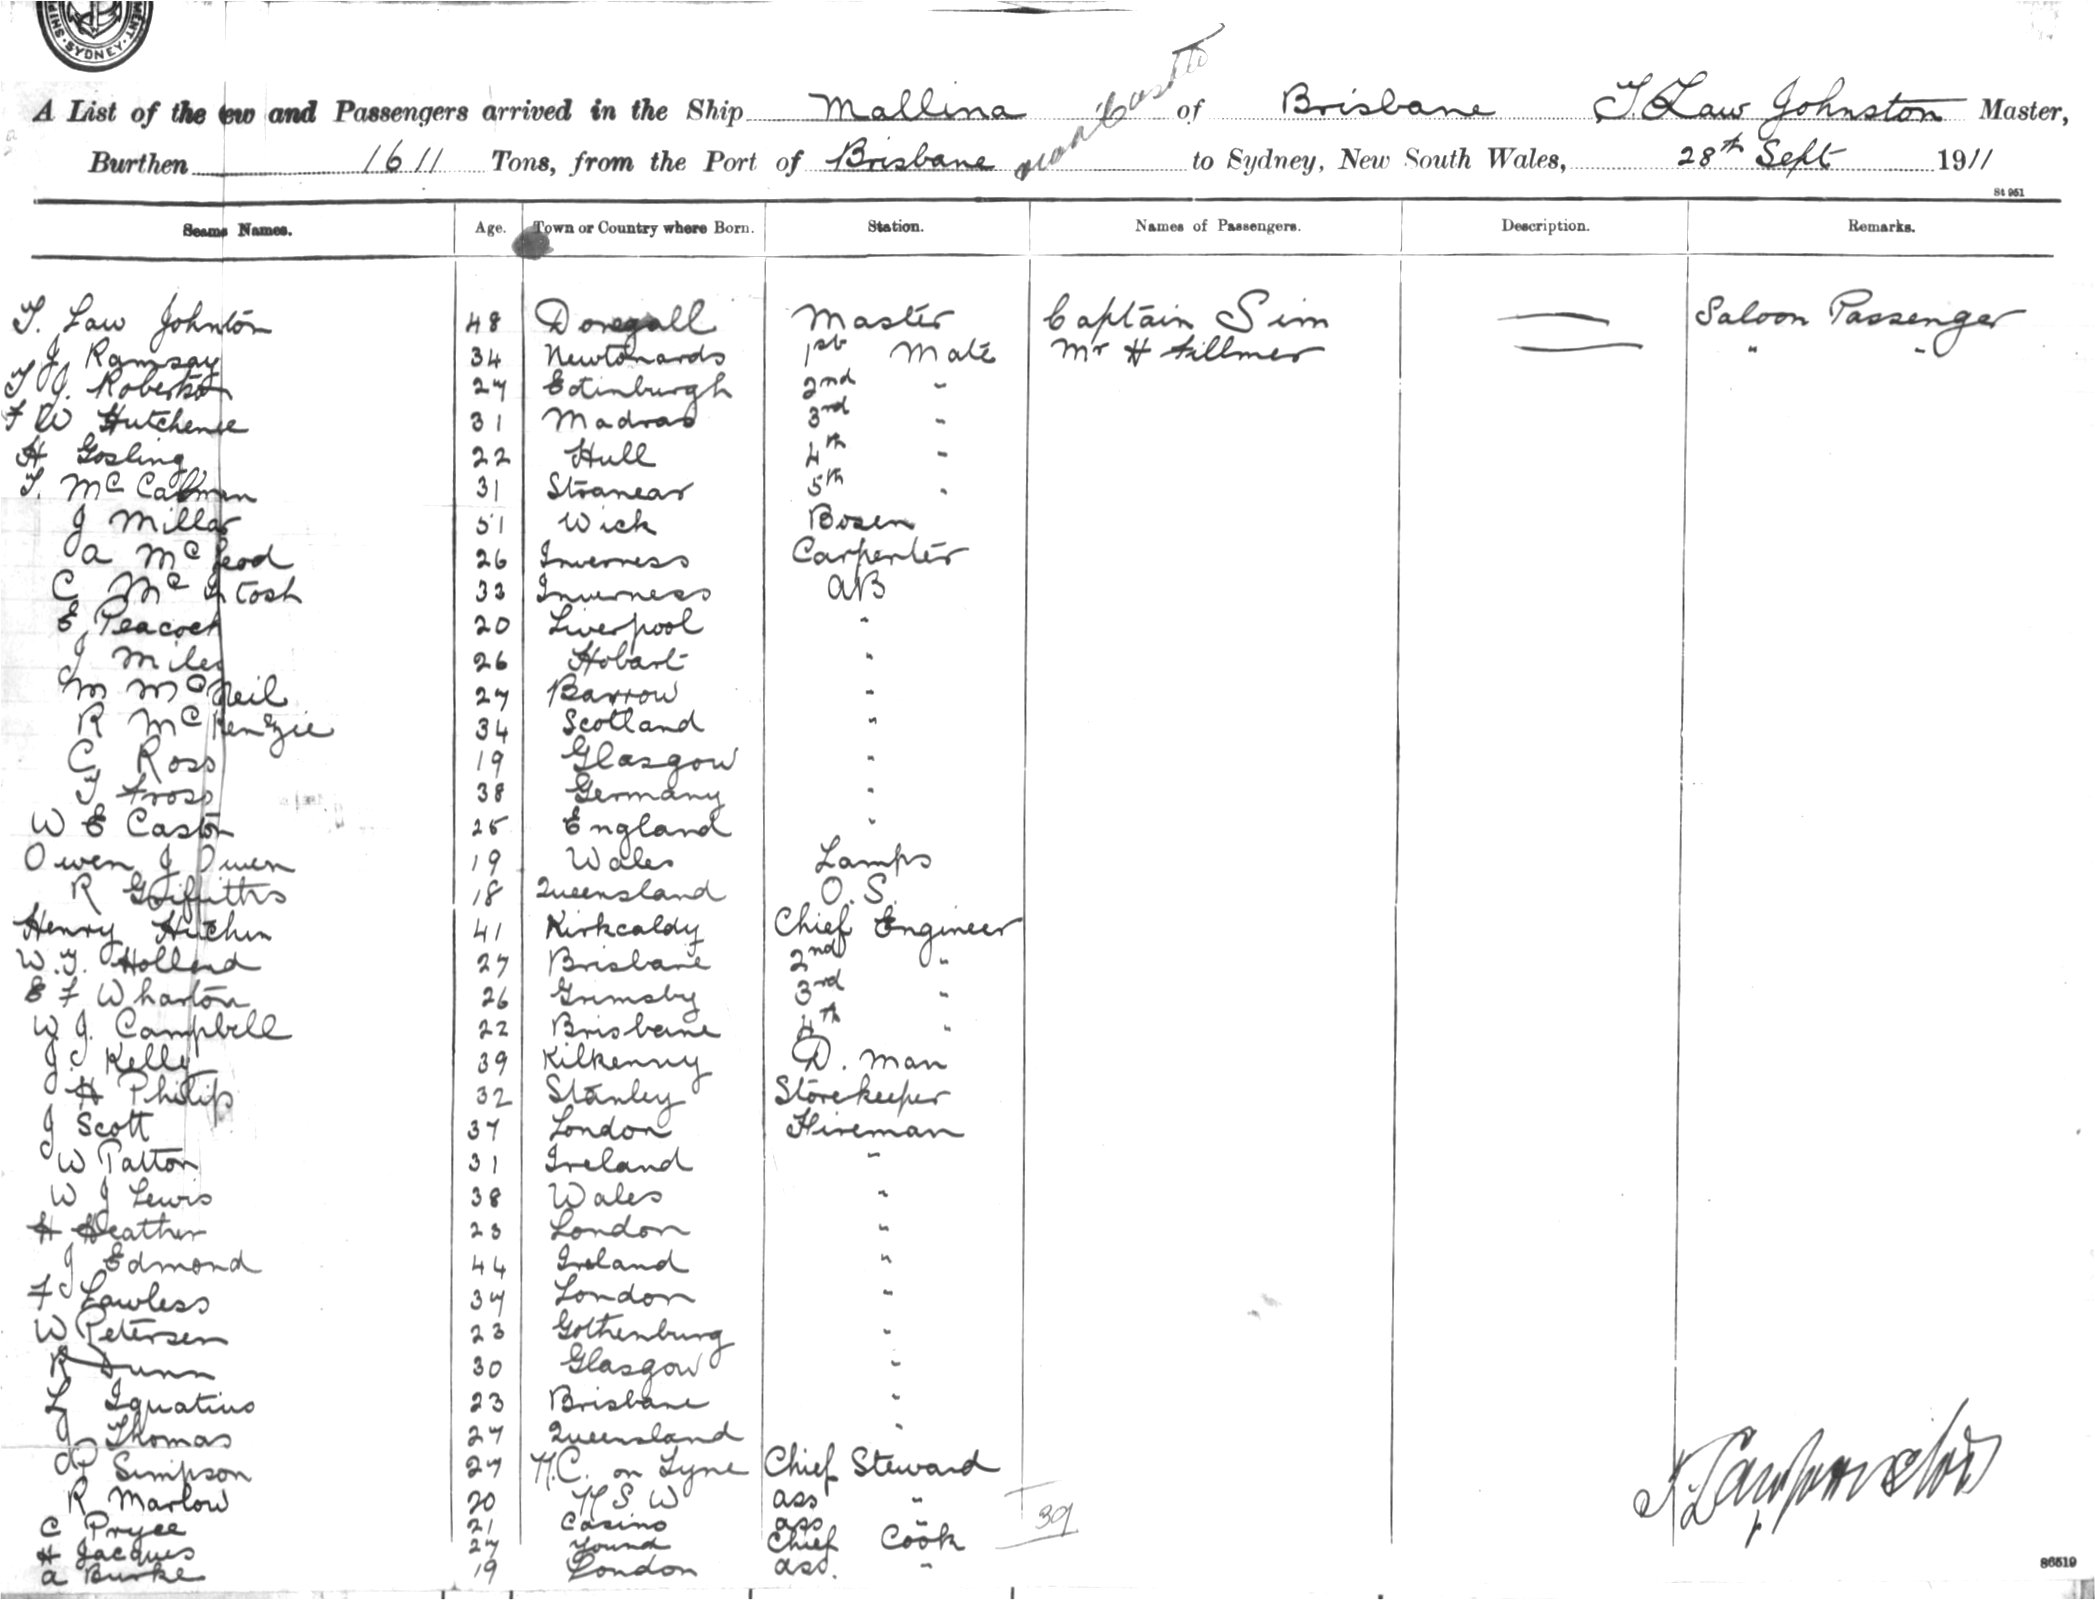 SYDNEY
A List of the ew and Passengers arrived in the Ship Mallina of Brisbane T. Law Johnston Master,
Burthen 1611 Tons, from the Port of Brisbane to Sydney, New South Wales, 28th Sept 1911
St 951
Names. Age. Town or Country where Born. Station. Names of Passengers. Description. Remarks.
T. Law Johnton 48 Donegall Master Captain Sim Saloon Passenger
J Ramsay 34 Newtonards 1st Mate Mr H Fillmer " "
T J. Roberton 27 Edinburgh 2nd "
F W 31 Madras 3rd "
H Gosling 22 Hull 4th "
T. McCalman 31 Stranear 5th "
J Millar 51 Wick Bosen
A McLeod 26 Inverness Carpenter
C McIntosh 33 Inverness AB
E Peacock 20 Liverpool "
J Miles 26 Hobart "
M McNeil 27 Barrow "
R McKenzie 34 Scotland "
C Ross 19 Glasgow "
T Fross 38 Germany "
W E Caston 25 England "
Owen J Owen 19 Wales Lamps
R Griffiths 18 Queensland O.S.
Henry Hitchin 41 Kirkcaldy Chief Engineer
W.T. Holland 27 Brisbane 2nd "
E F Wharton 26 Grimsby 3rd "
W J. Campbell 22 Brisbane 4th "
J. Kelly 39 Kilkenny D. man
H Philips 32 Stanley Storekeeper
J Scott 37 London Fireman
W Patton 31 Ireland "
W J Lewis 38 Wales "
H Heather 23 London "
J Edmond 44 Ireland "
F Lawless 37 London "
W Petersen 23 Gothenburg "
R Dunn 30 Glasgow "
L Ignatius 23 Brisbane "
J Thomas 27 Queensland "
Simpson 27 N.C. on Tyne Chief Steward
R Marlow 20 N S W ass "
C Pryce 21 Casino ass "
H Jacques 27 Young Chief Cook
A Burke 19 London ass. "
39
T. Law Johnston
86519